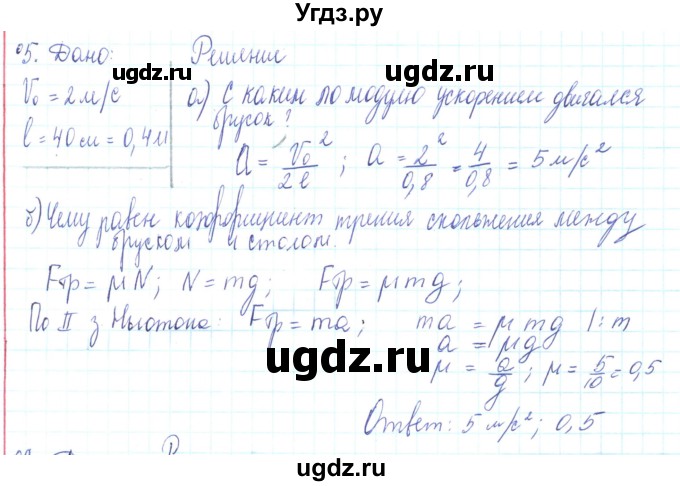 Угдз.ру
№5. Дано:
Решение
V₀ = 2 м/с
l = 40 см = 0,4 м
а) С каким по модулю ускорением двигался
брусок?
a = V₀²/2l ; a = 2²/0,8 = 4/0,8 = 5 м/с²
б) Чему равен коэффициент трения скольжения между
бруском и столом.
Fтр = μN; N = mg; Fтр = μmg;
По II з Ньютона: Fтр = ma; ma = μmg |:m
a = μg
μ = a/g ; μ = 5/10 = 0,5
Ответ: 5 м/с²; 0,5
uqdz.ru
uqdz.ru
uqdz.ru
uqdz.ru
uqdz.ru